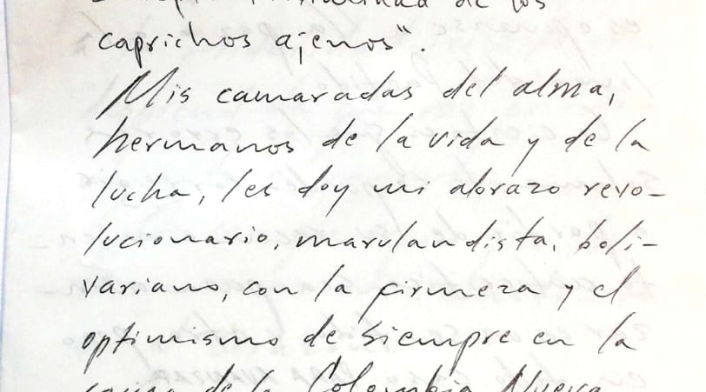 de los
caprichos ajenos".
Mis camaradas del alma,
hermanos de la vida y de la
lucha, les doy mi abrazo revo-
lucionario, marulandista, boli-
variano, con la firmeza y el
optimismo de siempre en la
causa de la Colombia Nueva